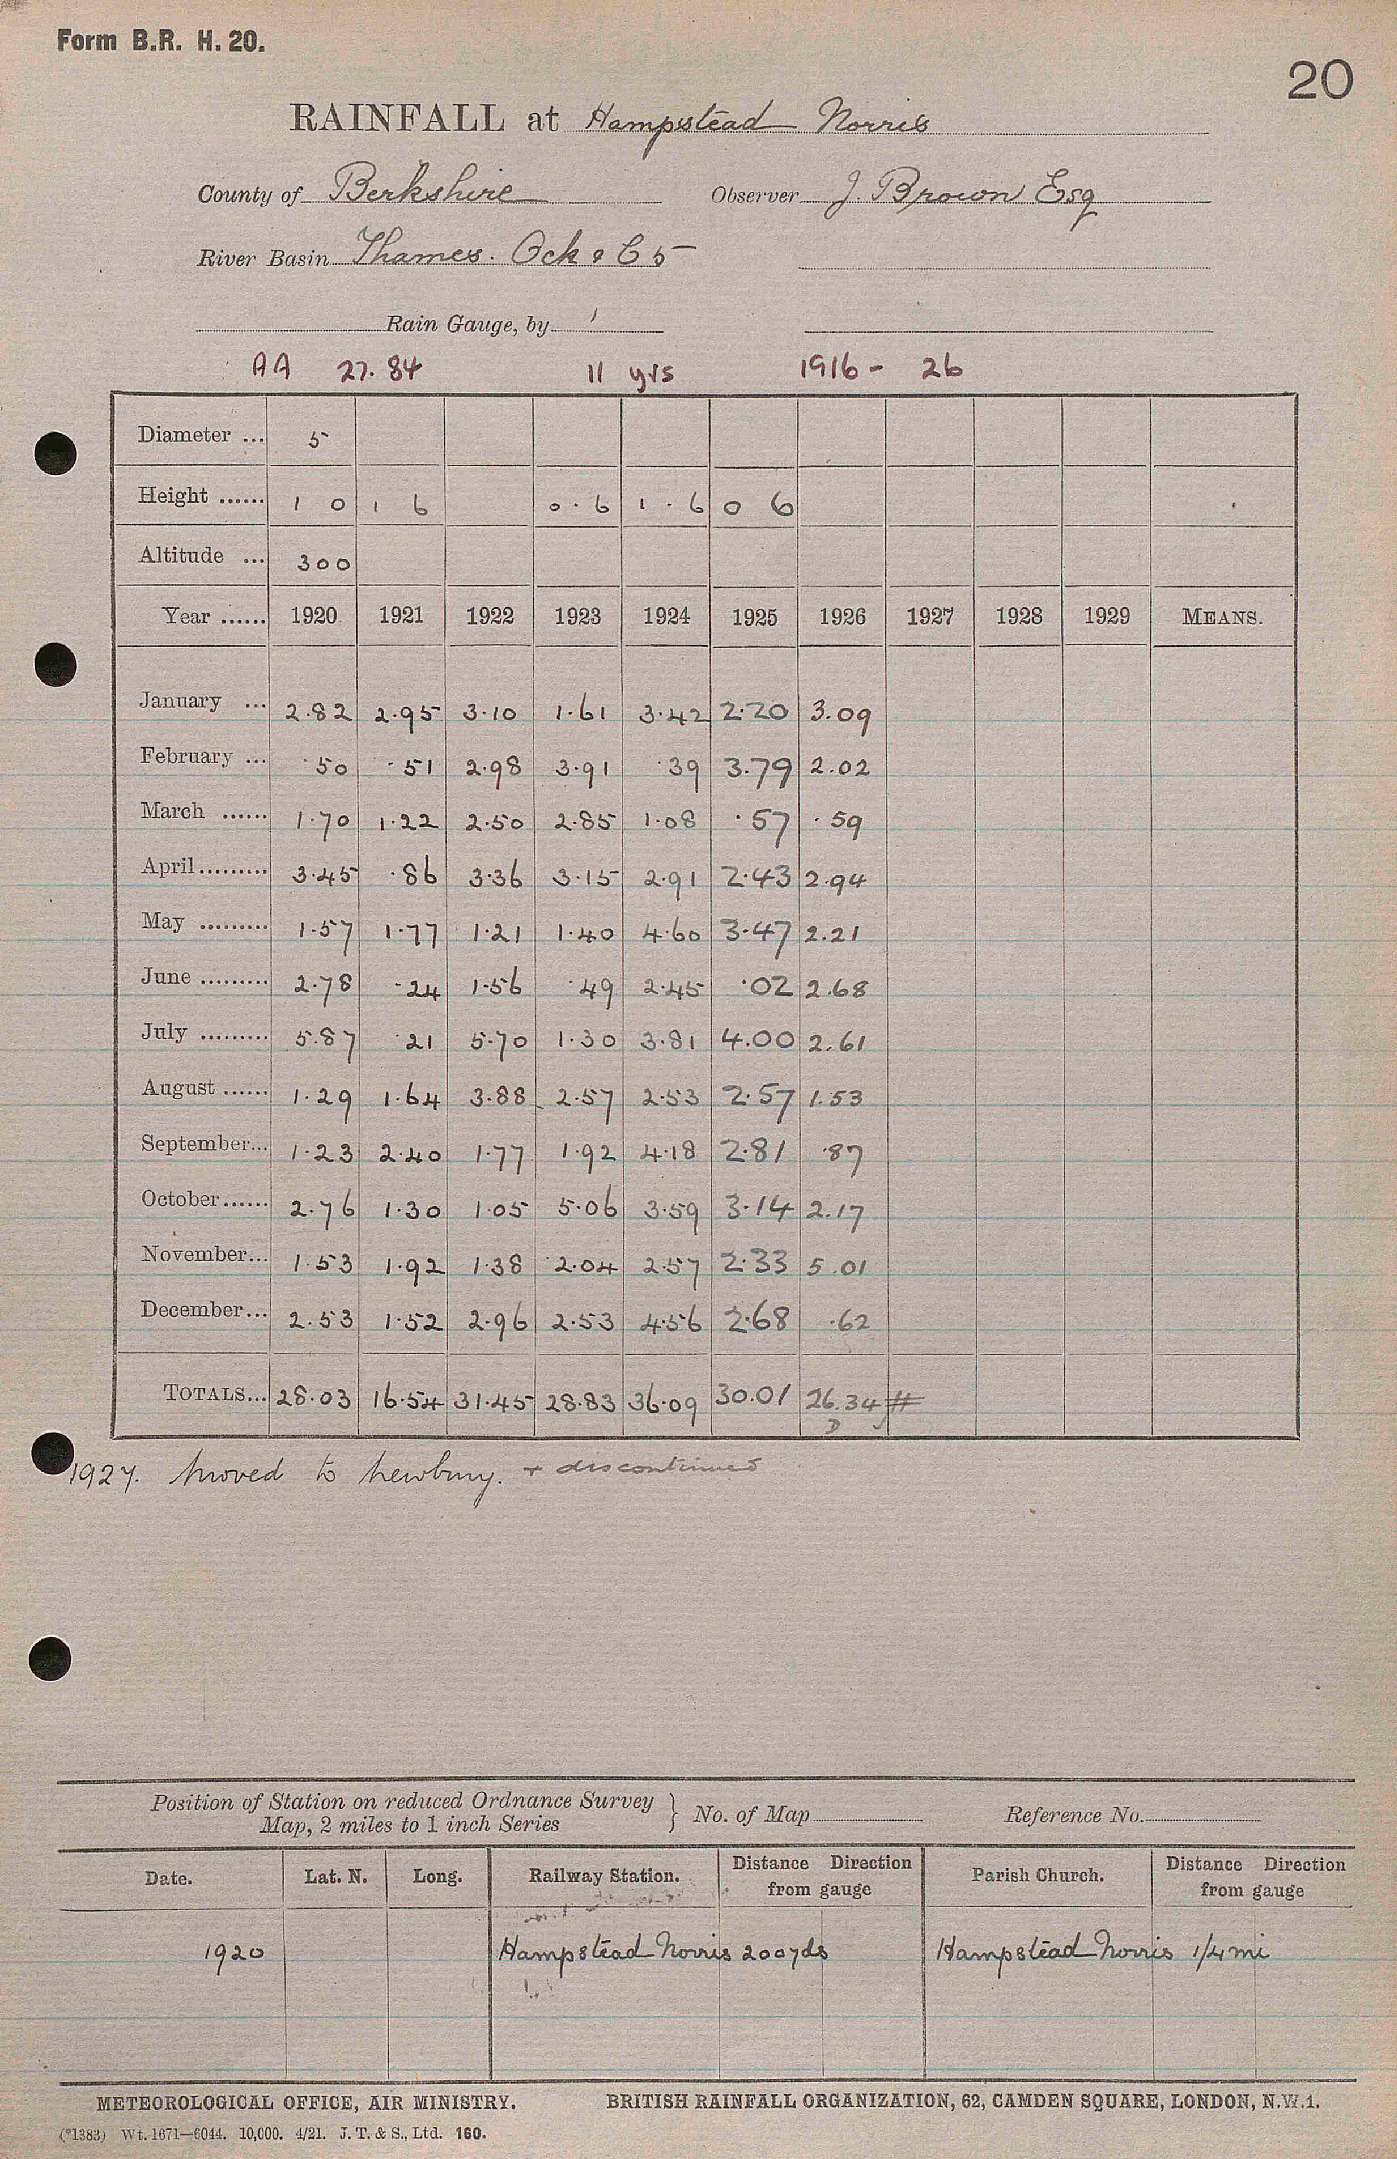 Form B.R. H. 20.
20
RAINFALL at Hampstead Norris
County of Berkshire Observer J. Brown Esq
River Basin Thames. Ock & C5
Rain Gauge, by
AA 27.84 11 yrs 1916 - 26
Diameter ... 5
Height ...... 1 0 1 6 0.6 1.6 0 6
Altitude ... 300
Year ...... 1920 1921 1922 1923 1924 1925 1926 1927 1928 1929 MEANS.
January ... 2.82 2.95 3.10 1.61 3.42 2.20 3.09
February ... .50 .51 2.98 3.91 .39 3.79 2.02
March ...... 1.70 1.22 2.50 2.85 1.08 .57 .59
April......... 3.45 .86 3.36 3.15 2.91 2.43 2.94
May ......... 1.57 1.77 1.21 1.40 4.60 3.47 2.21
June ......... 2.78 .24 1.56 .49 2.45 .02 2.68
July ......... 5.87 .21 5.70 1.30 3.81 4.00 2.61
August ...... 1.29 1.64 3.88 2.57 2.53 2.57 1.53
September... 1.23 2.40 1.77 1.92 4.18 2.81 .87
October...... 2.76 1.30 1.05 5.06 3.59 3.14 2.17
November... 1.53 1.92 1.38 2.04 2.57 2.33 5.01
December... 2.53 1.52 2.96 2.53 4.56 2.68 .62
TOTALS... 28.03 16.54 31.45 28.83 36.09 30.01 26.34 #
D
1927. Moved to Newbury. + discontinued
Position of Station on reduced Ordnance Survey
Map, 2 miles to 1 inch Series } No. of Map Reference No.
Date. Lat. N. Long. Railway Station. Distance Direction from gauge Parish Church. Distance Direction from gauge
1920 Hampstead Norris 200yds Hampstead Norris 1/4 mi
METEOROLOGICAL OFFICE, AIR MINISTRY. BRITISH RAINFALL ORGANIZATION, 62, CAMDEN SQUARE, LONDON, N.W.1.
(*1383) Wt. 1671—6044. 10,000. 4/21. J. T. & S., Ltd. 160.